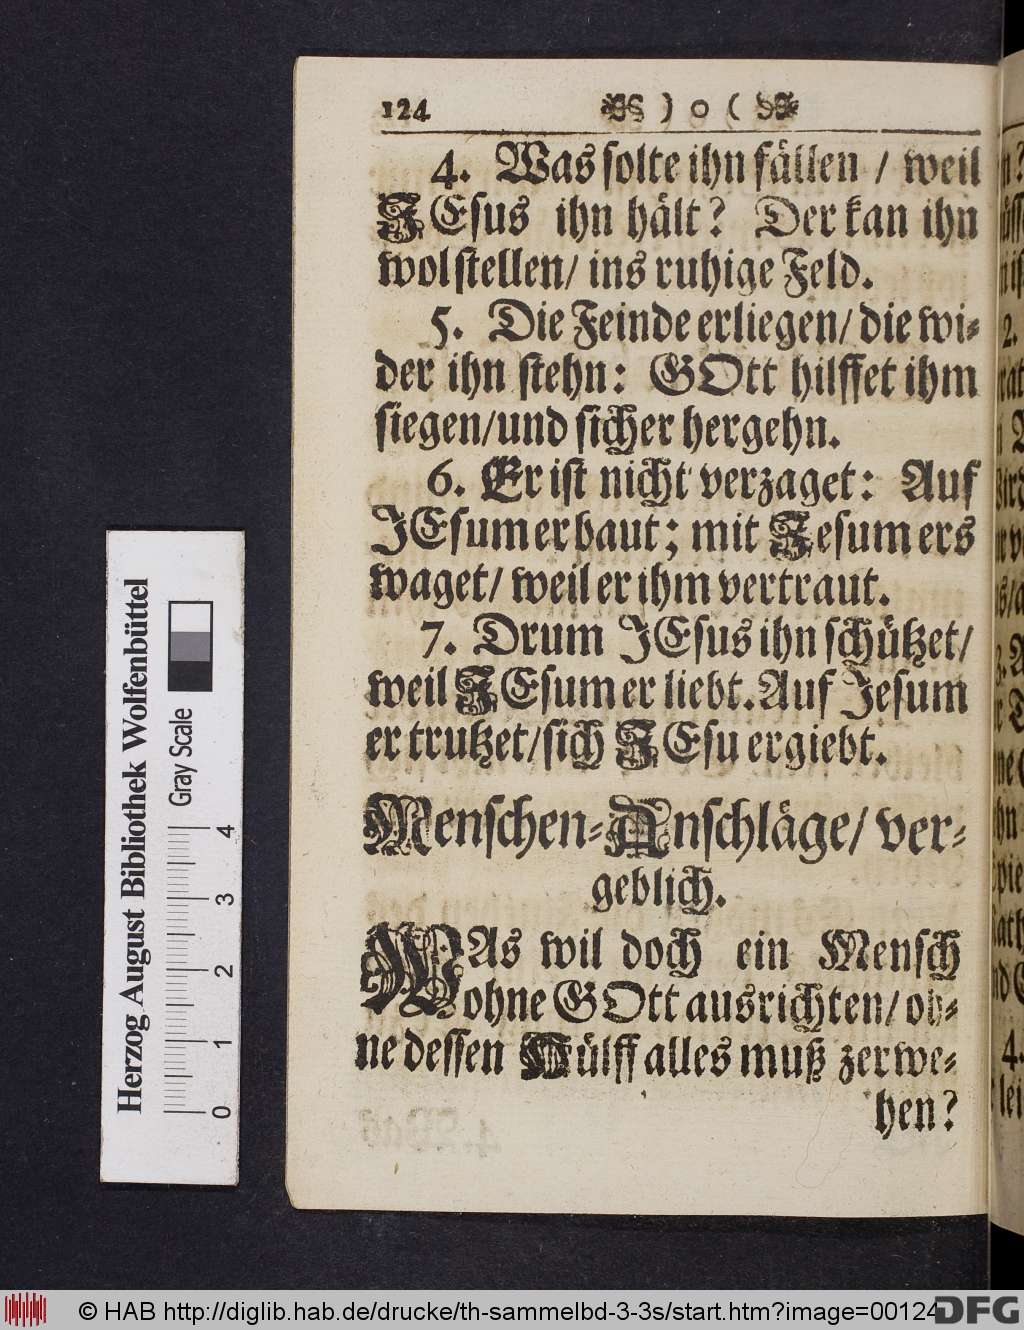 124 ) o (
4. Was solte ihn fällen / weil
JEsus ihn hält? Der kan ihn
wol stellen/ ins ruhige Feld.
5. Die Feinde erliegen/ die wi-
der ihn stehn: GOtt hilffet ihm
siegen/ und sicher hergehn.
6. Er ist nicht verzaget: Auf
JEsum er baut; mit Jesum ers
waget/ weil er ihm vertraut.
7. Drum JEsus ihn schützet/
weil JEsum er liebt. Auf Jesum
er trutzet/ sich JEsu ergiebt.
Menschen-Anschläge/ ver-
geblich.
WAs wil doch ein Mensch
ohne GOtt ausrichten/ oh-
ne dessen Hülff alles muß zerwe-
hen?
Herzog August Bibliothek Wolfenbüttel
Gray Scale
0 1 2 3 4
© HAB http://diglib.hab.de/drucke/th-sammelbd-3-3s/start.htm?image=00124
DFG